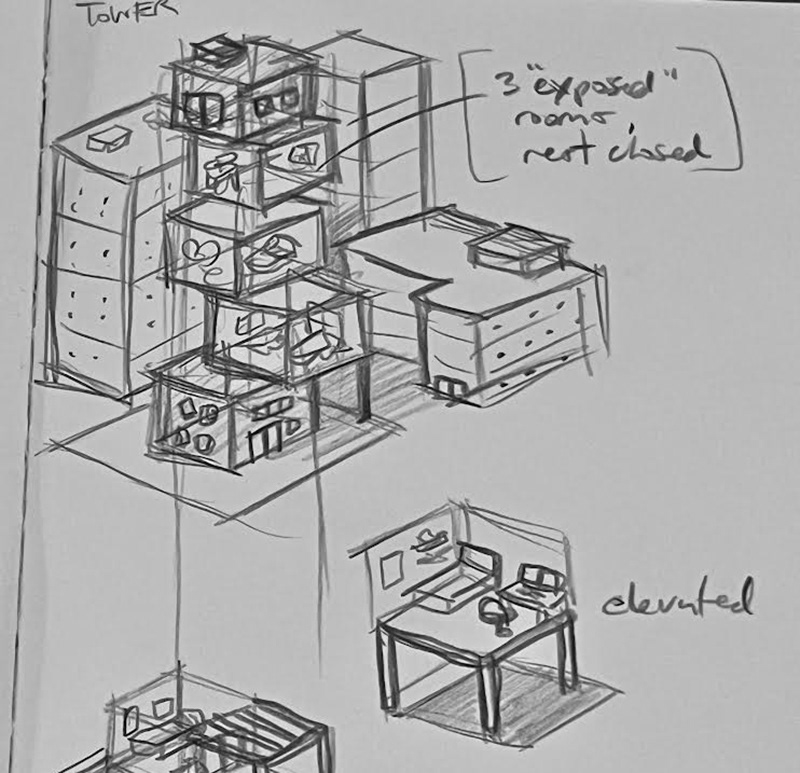 TOWER
3 "exposed"
rooms,
rest closed
elevated